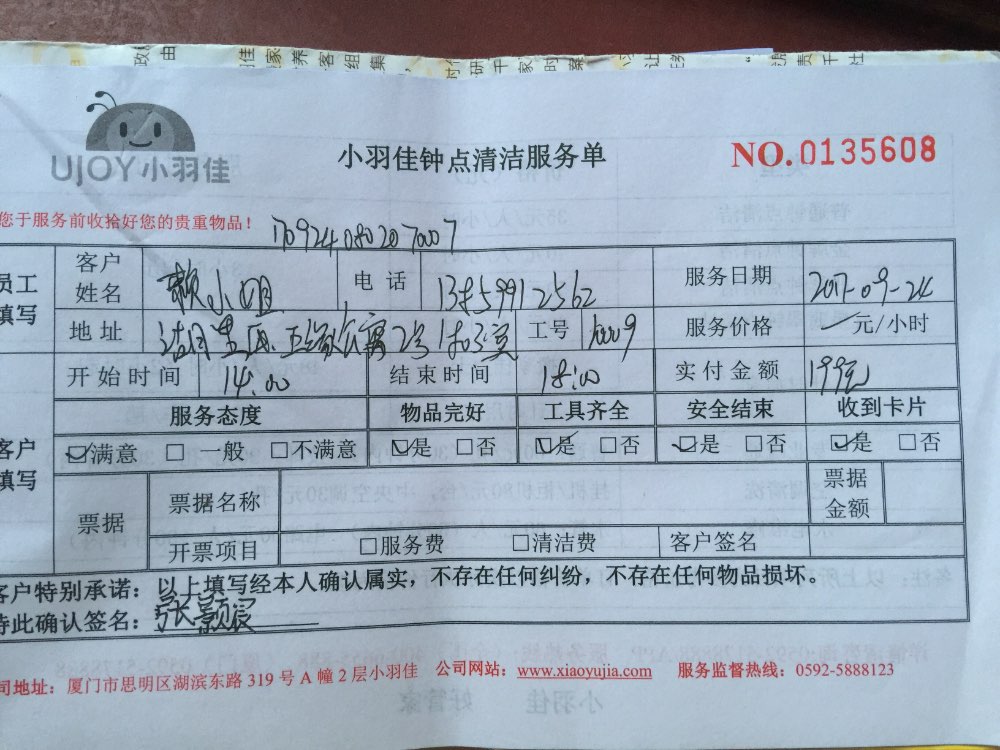 UJOY小羽佳
小羽佳钟点清洁服务单
NO.0135608
您于服务前收拾好您的贵重物品！
170924080207007
员工填写 客户姓名 赖小姐 电话 服务日期 2017-09-24
地址 工号 服务价格 元/小时
开始时间 14:00 结束时间 18:00 实付金额 199元
服务态度 物品完好 工具齐全 安全结束 收到卡片
客户填写 ☑满意 □一般 □不满意 ☑是 □否 ☑是 □否 ☑是 □否 ☑是 □否
票据 票据名称 票据金额
开票项目 □服务费 □清洁费 客户签名
客户特别承诺：以上填写经本人确认属实，不存在任何纠纷，不存在任何物品损坏。
特此确认签名：张颢宸
司地址：厦门市思明区湖滨东路 319 号 A 幢 2 层小羽佳 公司网站：www.xiaoyujia.com 服务监督热线：0592-5888123